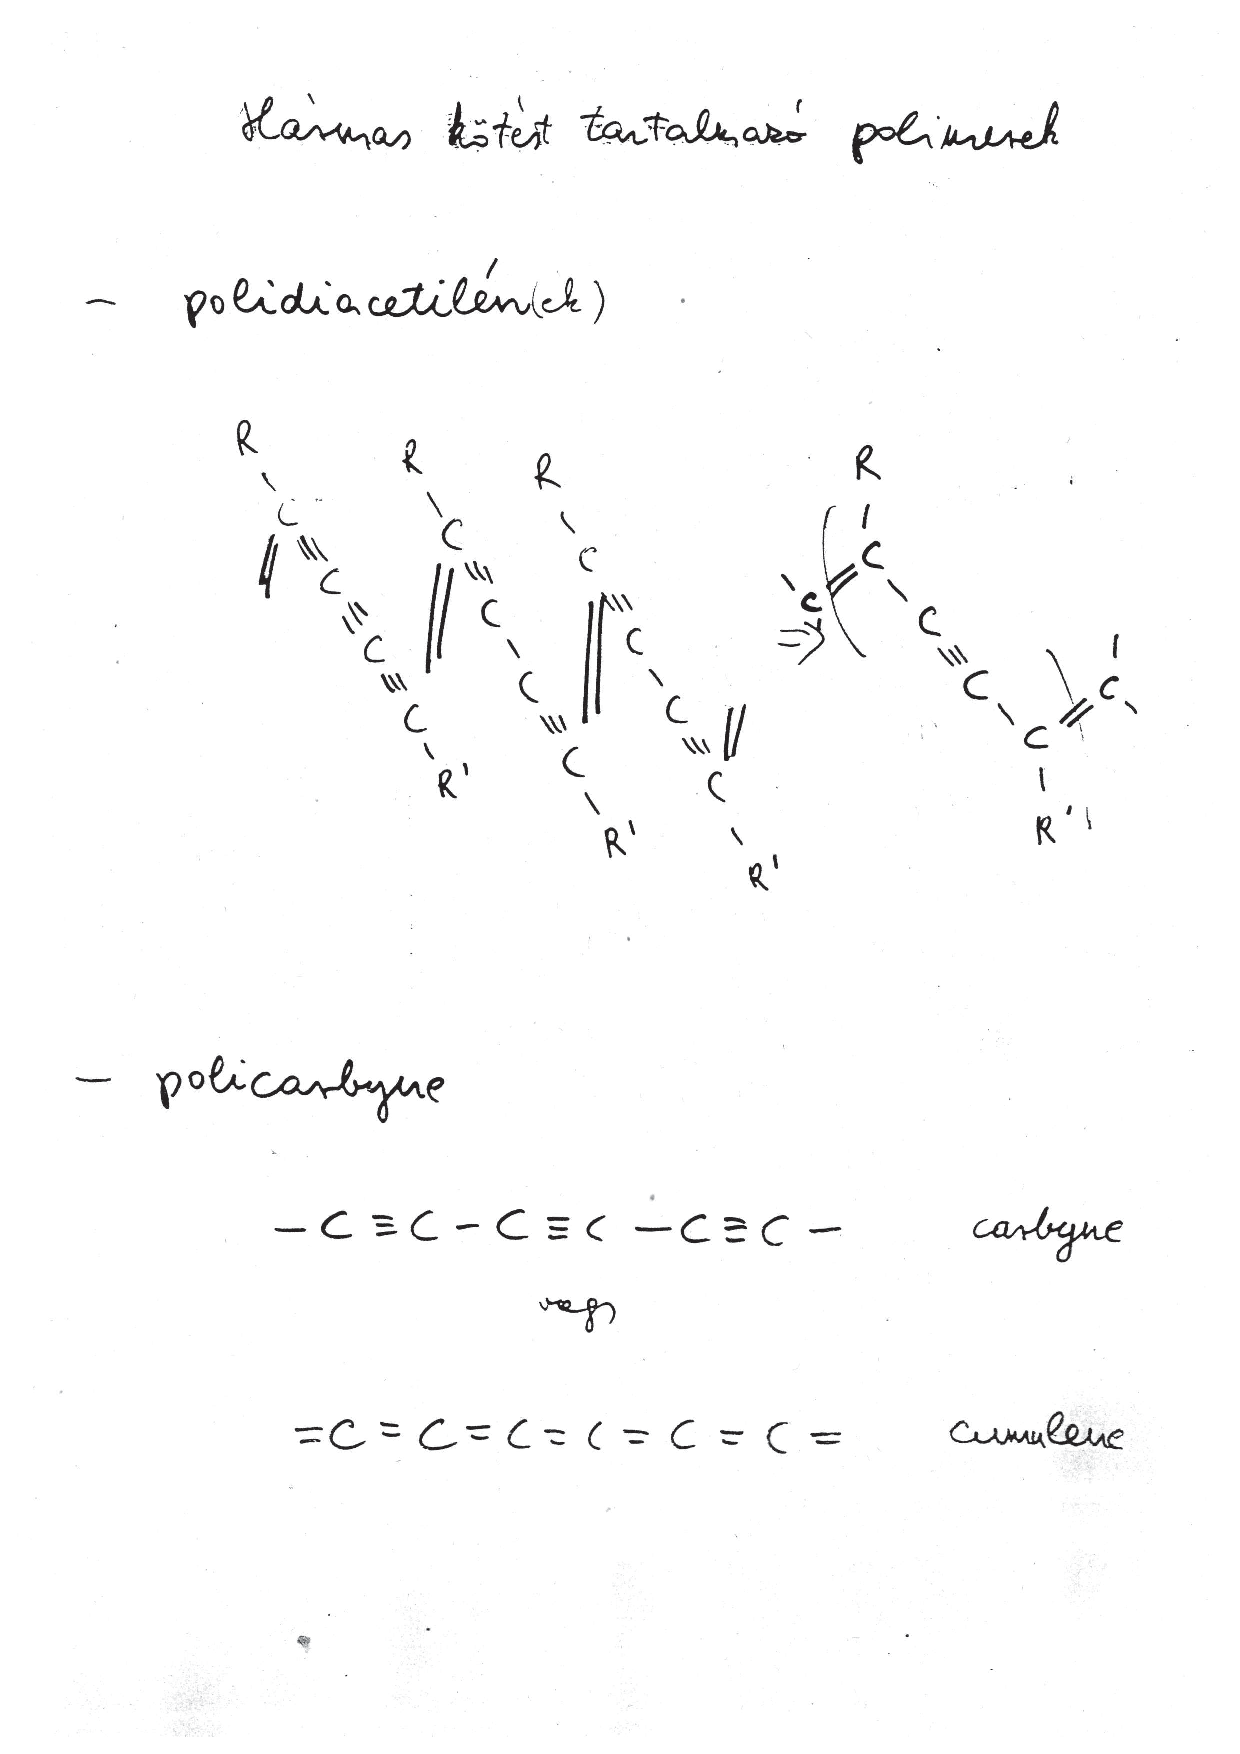 Hármas kötést tartalmazó polimerek
- polidiacetilén(ek)
R R R R
C C C C
C C C C C
C C C C C
C C C C
R' R' R' R'
- policarbyne
- C ≡ C - C ≡ C - C ≡ C - carbyne
vagy
= C = C = C = C = C = C = cumulene